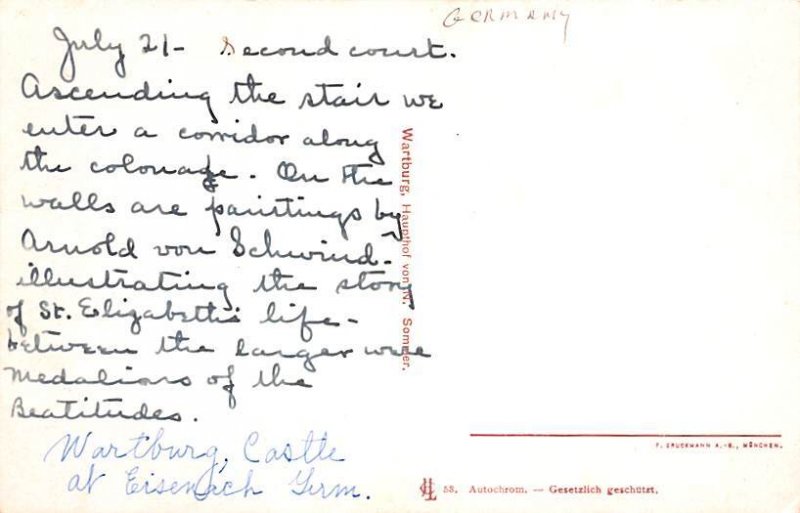 GERMANY
July 21- Second court.
Ascending the stair we
enter a corridor along
the colonage. On the
walls are paintings by
Arnold von Schwind-
illustrating the story
of St. Elizabeth's life-
between the larger were
Medalions of the
Beatitudes.
Wartburg, Castle
at Eisenach Germ.
Wartburg, Haupthof von N. Sommer.
F. BRUCKMANN A.-G., MÜNCHEN.
53. Autochrom. — Gesetzlich geschützt.